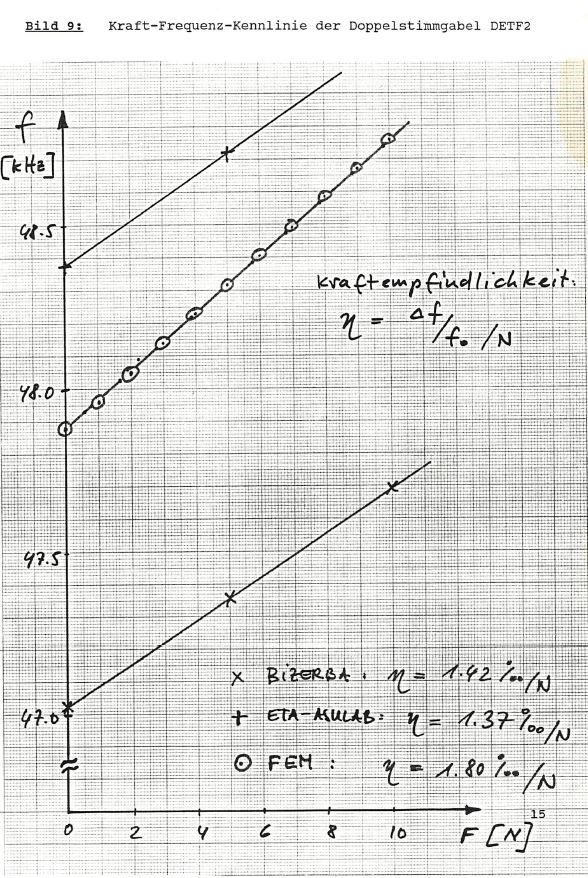 Bild 9: Kraft-Frequenz-Kennlinie der Doppelstimmgabel DETF2
f
[kHz]
48.5
Kraftempfindlichkeit:
η = Δf/f₀ /N
48.0
47.5
× BIZERBA : η = 1.42 ‰/N
47.0
+ ETA-ASULAB: η = 1.37 ‰/N
⊙ FEM : η = 1.80 ‰/N
0 2 4 6 8 10 F [N]
15